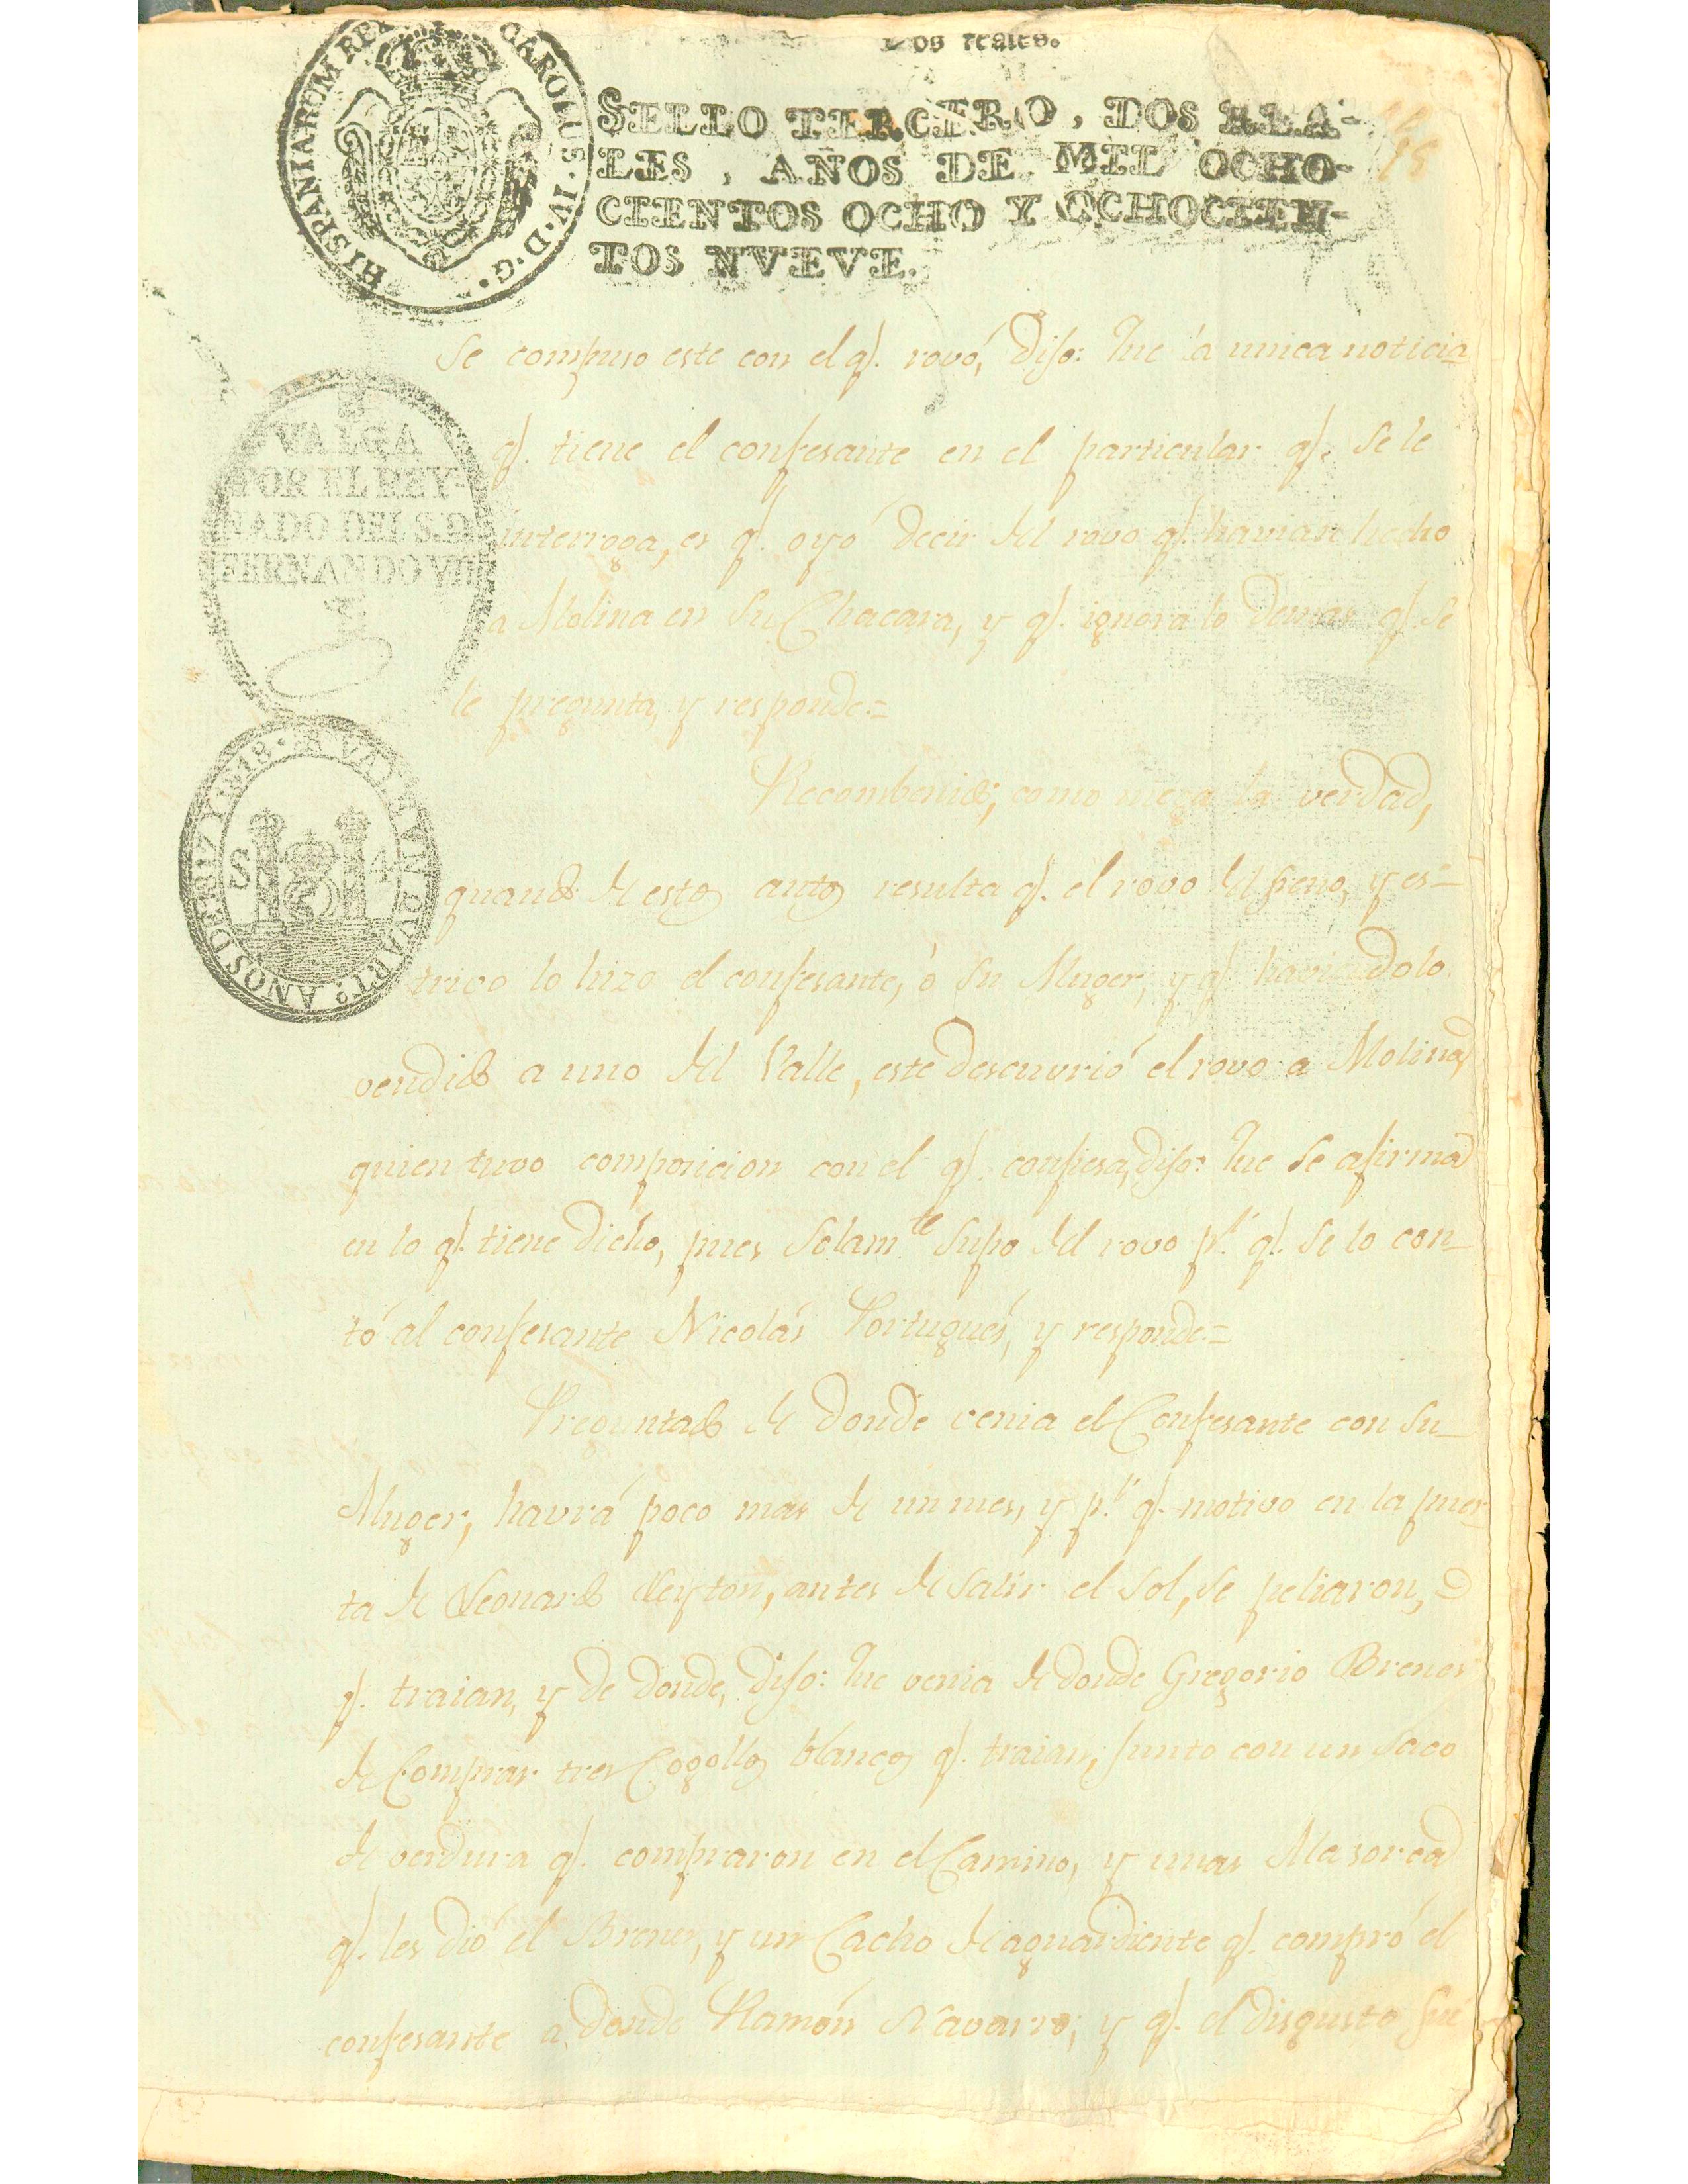 Dos reales.
HISPANIARUM REX CAROLUS·IV·D·G·
SELLO TERCERO, DOS REA-
LES, AÑOS DE MIL OCHO-
CIENTOS OCHO Y OCHOCIEN-
TOS NVEVE.
Se compuso este con el q.e rovó, Dijo: Que la unica noticia
VALGA
POR EL REY-
NADO DEL S.D.
FERNANDO VII
q.e tiene el confesante en el particular q.e Se le
interroga, es q.e oyó decir del rovo q.e havian hecho
a Molina en Su Chacara, y q.e ignora lo demas q.e Se
le pregunta, y responde=
Recombenido; como niega la verdad,
S 4
VN QUART.º AÑOS DE 1817 Y 1818
quando de estos autos resulta q.e el rovo del freno, y es=
trivo lo hizo el confesante, ó Su Muger, y q.e haviendolo
vendido a uno del Valle, este descuvrió el rovo a Molina,
quien tuvo composicion con el q.e confiesa, dijo: Que Se afirma
en lo q.e tiene Dicho, pues Solam.te Supo del rovo p.r q.e Se lo con_
tó al confesante Nicolás Portugués, y responde=
Preguntado de donde venia el Confesante con Su_
Muger, havrá poco mas de un mes, y p.r q.e motivo en la puer
ta de Leonardo Leyton, antes de Salir el Sol, Se peliaron,
q.e traian, y de donde, Dijo: Que venia de donde Gregorio Brenes
de Comprar tres Cogollos blancos q.e traian, junto con un Saco
de verdura q.e compraron en el Camino, y unas Masorcas
q.e les dió el Brenes, y un Cacho de aguardiente q.e compró el
confesante a donde Ramón Navarro; y q.e el disgusto fué